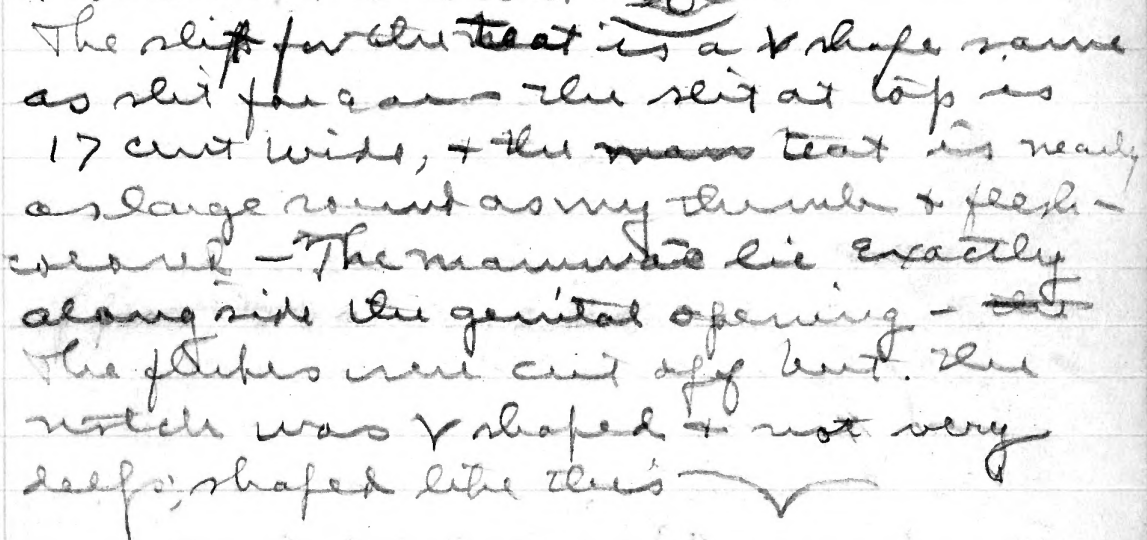 The slit for the teat is a V shape same
as slit for anus the slit at top is
17 cent wide, + the mam teat is nearly
as large round as my thumb + flesh-
colored - The mammae lie exactly
alongside the genital opening - the
The flukes were cut off but. the
notch was V shaped + not very
deep; shaped like this